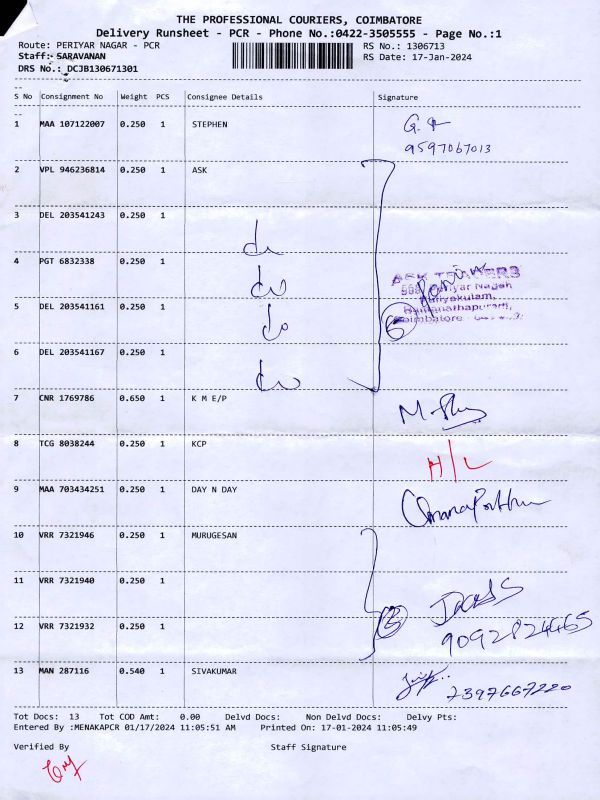 THE PROFESSIONAL COURIERS, COIMBATORE
Delivery Runsheet - PCR - Phone No.:0422-3505555 - Page No.:1
Route: PERIYAR NAGAR - PCR RS No.: 1306713
Staff: SARAVANAN RS Date: 17-Jan-2024
DRS No.: DCJB130671301
S No Consignment No Weight PCS Consignee Details Signature
1 MAA 107122007 0.250 1 STEPHEN
9597067013
2 VPL 946236814 0.250 1 ASK
3 DEL 203541243 0.250 1 do
4 PGT 6832338 0.250 1 do
ASK TRADERS
Periyar Nagar
Coimbatore
5 DEL 203541161 0.250 1 do
6
6 DEL 203541167 0.250 1 do
7 CNR 1769786 0.650 1 K M E/P
8 TCG 8038244 0.250 1 KCP H/L
9 MAA 703434251 0.250 1 DAY N DAY
10 VRR 7321946 0.250 1 MURUGESAN
11 VRR 7321940 0.250 1
12 VRR 7321932 0.250 1 3
9092824465
13 MAN 287116 0.540 1 SIVAKUMAR
7397667220
Tot Docs: 13 Tot COD Amt: 0.00 Delvd Docs: Non Delvd Docs: Delvy Pts:
Entered By :MENAKAPCR 01/17/2024 11:05:51 AM Printed On: 17-01-2024 11:05:49
Verified By Staff Signature